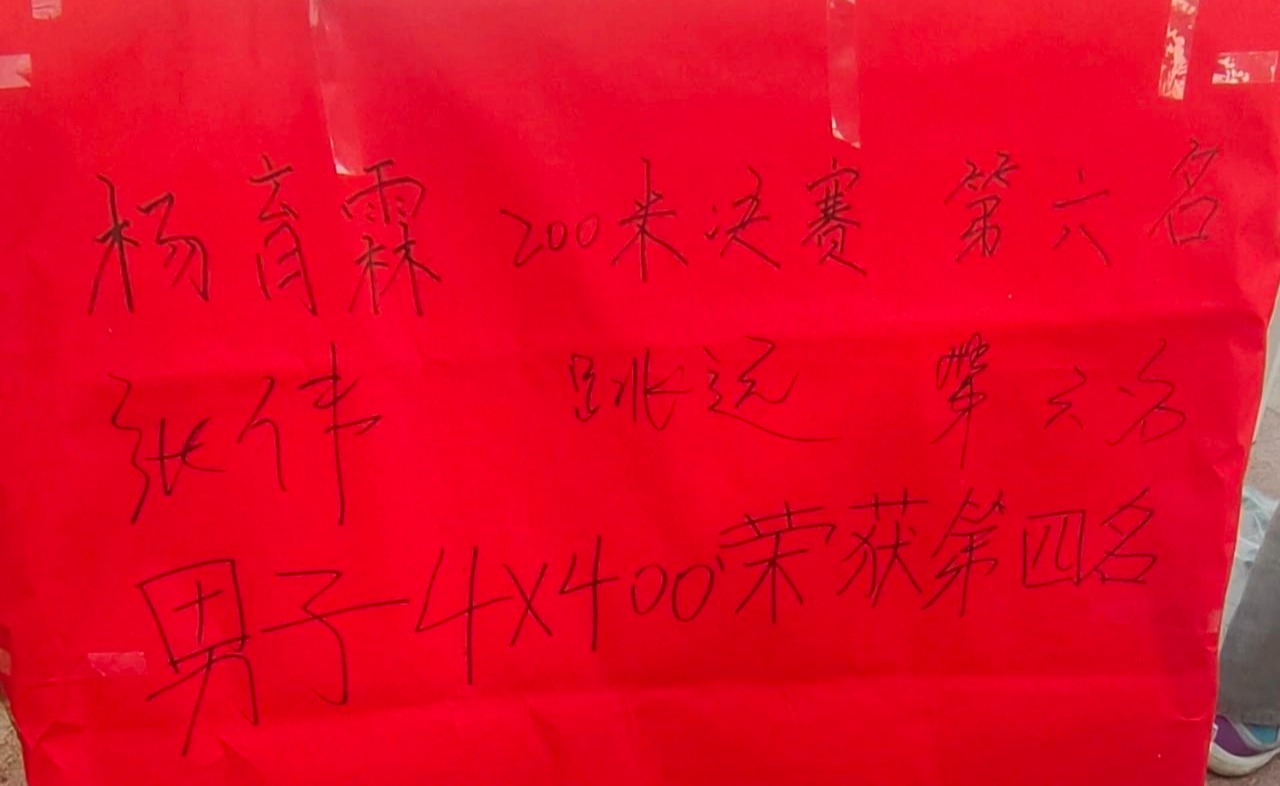 杨育霖 200米决赛 第六名
张伟 跳远 第六名
男子4X400荣获第四名